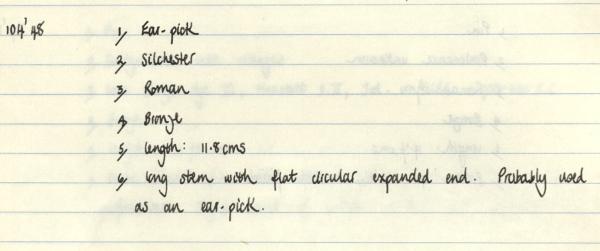 104'48 1, Ear-pick
2, Silchester
3, Roman
4, Bronze
5, length: 11.8 cms
6, long stem with flat circular expanded end. Probably used
as an ear-pick.